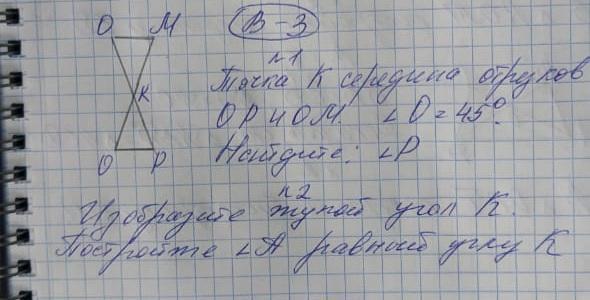 O M В-3
K
O P
n1
Точка K середина отрезков
OP и OM. ∠O = 45°.
Найдите: ∠P
n2
Изобразите тупой угол K.
Постройте ∠A равный углу K